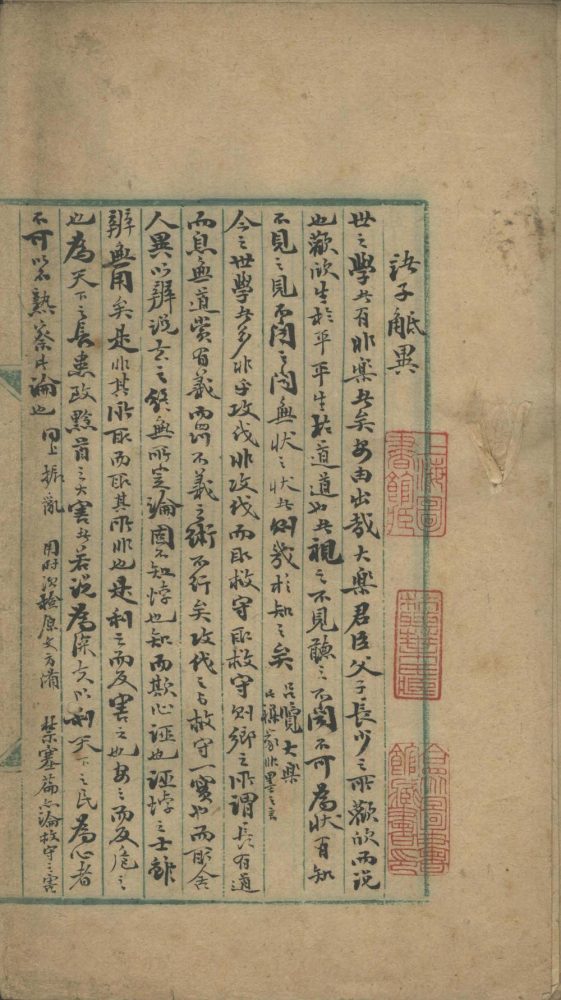 諸子觝異
世之學者有非樂者矣安由出哉大樂君臣父子長少之所歡欣而說
也歡欣生於平平生於道道也者視之不見聽之不聞不可為狀有知
不見之見不聞之聞無狀之狀者則幾於知之矣 呂覽大樂
此操家非墨之言
今之世學者多非乎攻伐非攻伐而取救守取救守則鄉之所謂長有道
而息無道賞有義而罰不義之術不行矣攻伐之與救守一實也而取舍
人異以辨說去之終無所定論固不知悖也知而欺心誣也誣悖之士雖
辨無用矣是非其所取而取其所非也是利之而反害之也安之而反危之
也為天下之長患致黔首之大害者若說為深夫以利天下之民為心者
不可以不熟察此論也 同上振亂 用時須檢原文方淆 禁塞篇亦論救守之害
上海圖
書館藏